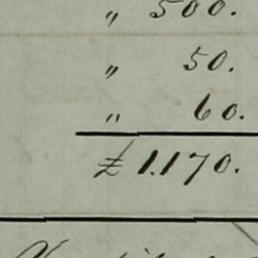 " 500.
" 50.
" 60.
£ 1.170.